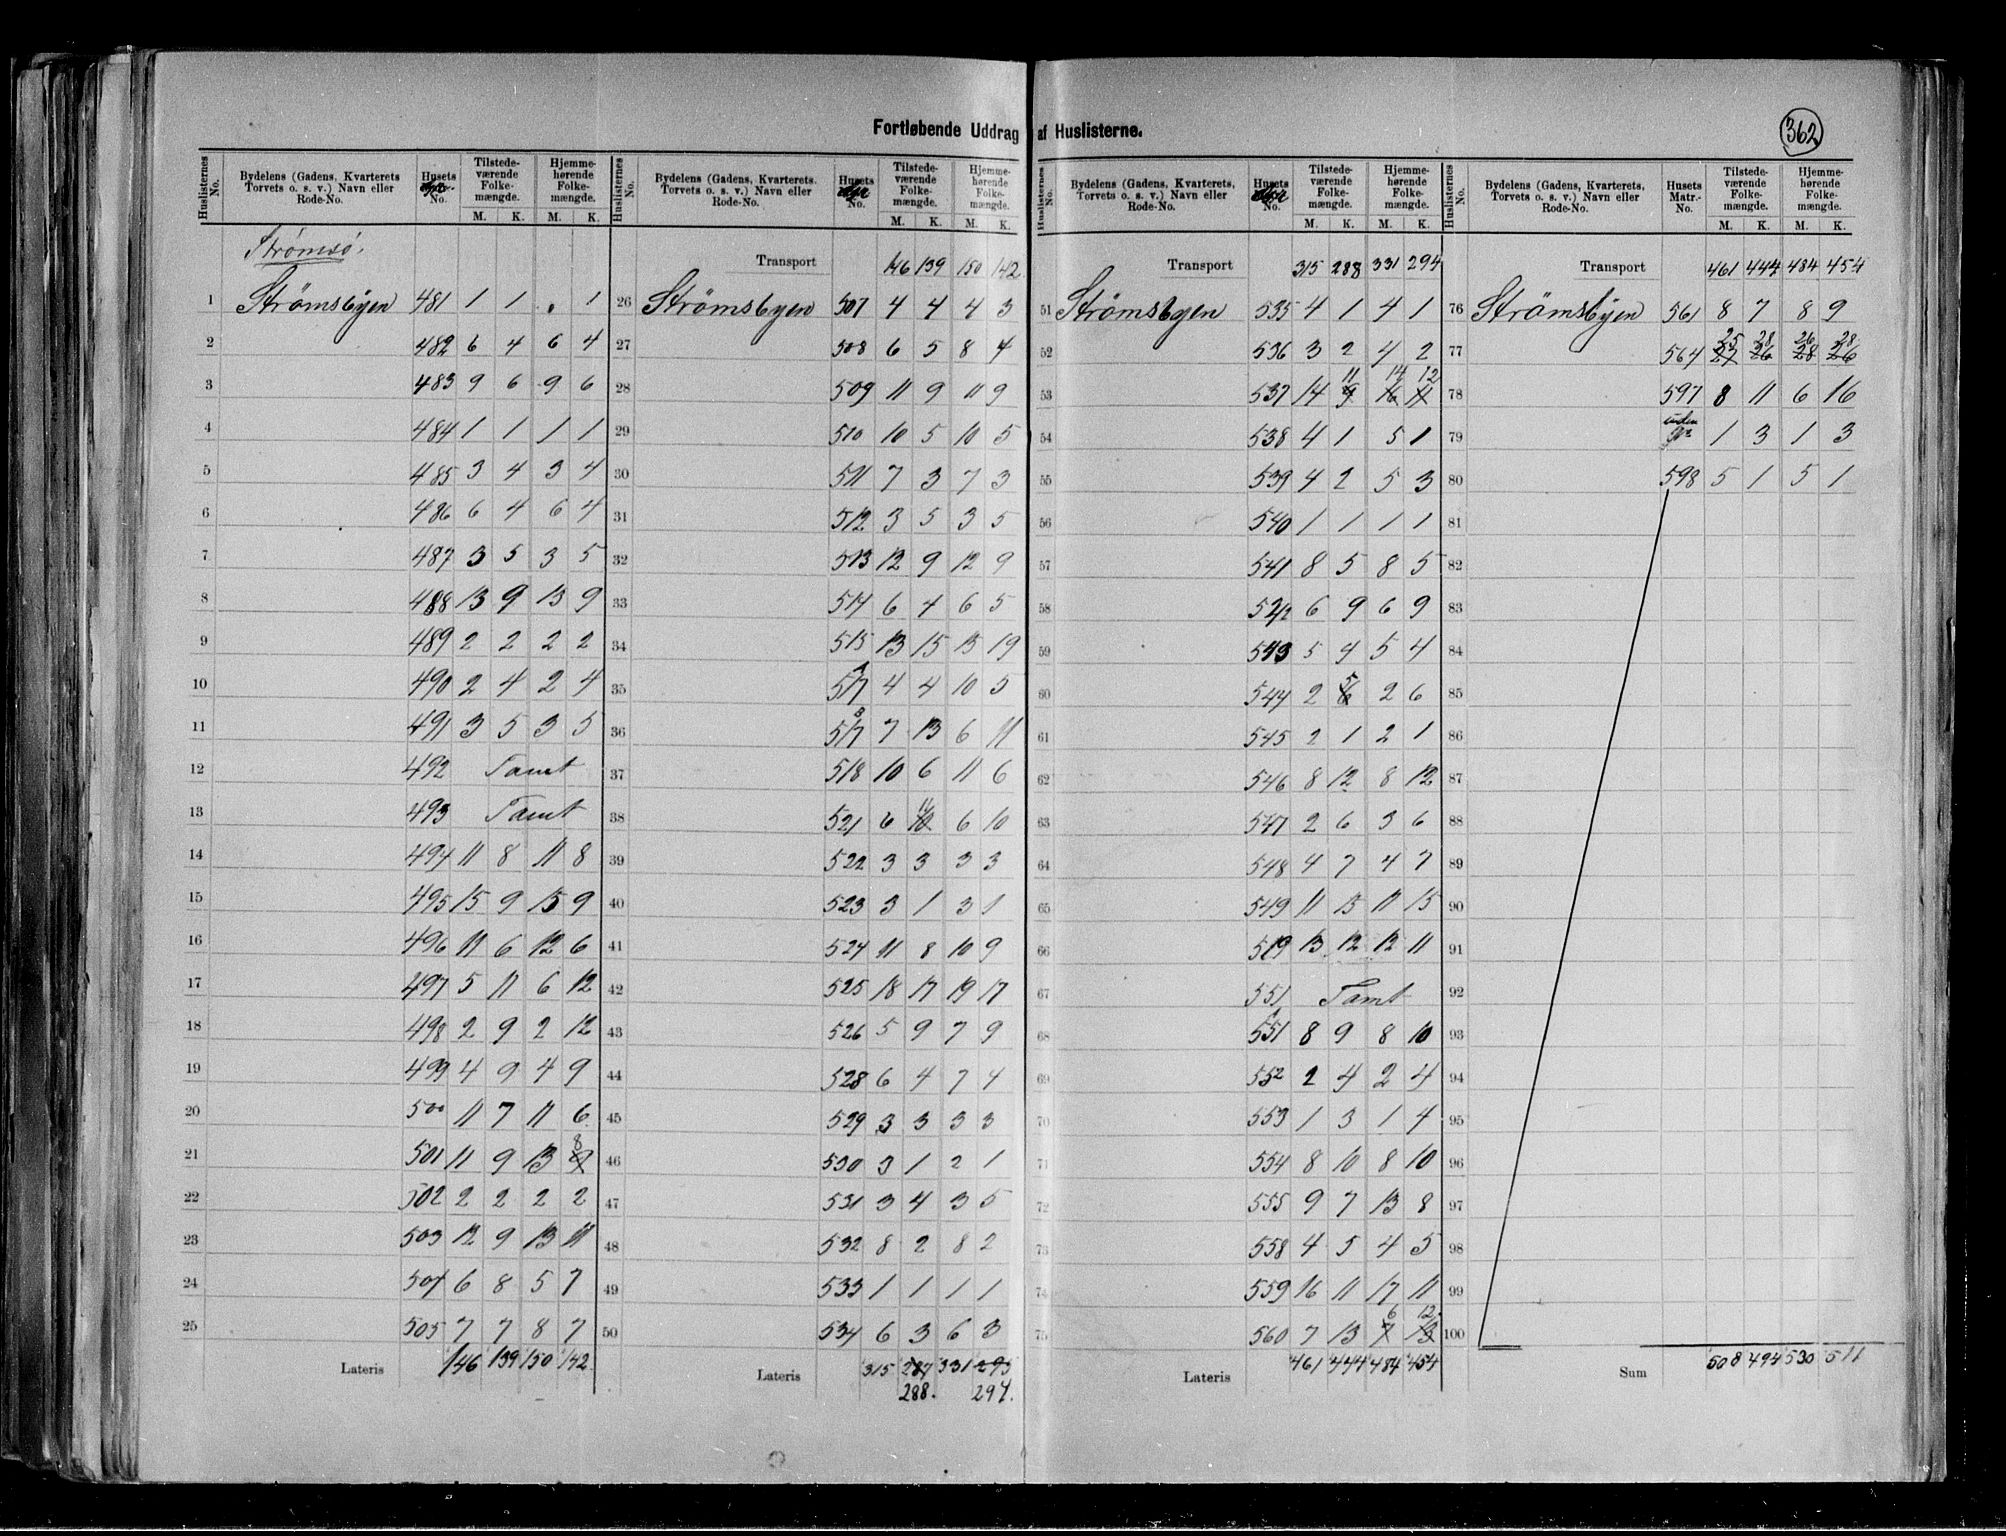 Fortløbende Uddrag af Huslisterne.
362
Huslisternes No. Bydelens (Gadens, Kvarterets Torvets o. s. v.) Navn eller Rode-No. Husets No. Tilstede-værende Folke-mængde. M. K. Hjemme-hørende Folke-mængde. M. K.
Strømsø.
1 Strømsbyen 481 1 1 . 1
2 482 6 4 6 4
3 483 9 6 9 6
4 484 1 1 1 1
5 485 3 4 3 4
6 486 6 4 6 4
7 487 3 5 3 5
8 488 13 9 13 9
9 489 2 2 2 2
10 490 2 4 2 4
11 491 3 5 3 5
12 492 Tomt
13 493 Tomt
14 494 11 8 11 8
15 495 15 9 15 9
16 496 11 6 12 6
17 497 5 11 6 12
18 498 2 9 2 12
19 499 4 9 4 9
20 500 11 7 11 6
21 501 11 9 13 8
22 502 2 2 2 2
23 503 12 9 13 11
24 504 6 8 5 7
25 505 7 7 8 7
Lateris 146 139 150 142
Huslisternes No. Bydelens (Gadens, Kvarterets. Torvets o. s. v.) Navn eller Rode-No. Husets No. Tilstede-værende Folke-mængde. M. K. Hjemme-hørende Folke-mængde. M. K.
Transport 146 139 150 142
26 Strømsbyen 507 4 4 4 3
27 508 6 5 8 4
28 509 11 9 11 9
29 510 10 5 10 5
30 511 7 3 7 3
31 512 3 5 3 5
32 513 12 9 12 9
33 514 6 4 6 5
34 515 13 15 15 19
35 517 4 4 10 5
36 517 7 13 6 11
37 518 10 6 11 6
38 521 6 11 10 6 10
39 522 3 3 3 3
40 523 3 1 3 1
41 524 11 8 10 9
42 525 18 17 19 17
43 526 5 9 7 9
44 528 6 4 7 4
45 529 3 3 3 3
46 530 3 1 2 1
47 531 3 4 3 5
48 532 8 2 8 2
49 533 1 1 1 1
50 534 6 3 6 3
Lateris 315 287 331 293
288. 294.
Huslisternes No. Bydelens (Gadens, Kvarterets, Torvets o. s. v.) Navn eller Rode-No. Husets No. Tilstede-værende Folke-mængde. M. K. Hjemme-hørende Folke-mængde. M. K.
Transport 315 288 331 294
51 Strømsbyen 535 4 1 4 1
52 536 3 2 4 2
53 537 14 11 9 14 16 12 11
54 538 4 1 5 1
55 539 4 2 5 3
56 540 1 1 1 1
57 541 8 5 8 5
58 542 6 9 6 9
59 543 5 4 5 4
60 544 2 5 6 2 6
61 545 2 1 2 1
62 546 8 12 8 12
63 547 2 6 3 6
64 548 4 7 4 7
65 549 11 13 11 15
66 519 13 12 12 11
67 551 Tomt
68 551 8 9 8 10
69 552 2 4 2 4
70 553 1 3 1 4
71 554 8 10 8 10
72 555 9 7 13 8
73 558 4 5 4 5
74 559 16 11 17 11
75 560 7 13 6 7 12 13
Lateris 461 444 484 454
Huslisternes No. Bydelens (Gadens, Kvarterets, Torvets o. s. v.) Navn eller Rode-No. Husets Matr.-No. Tilstede-værende Folke-mængde. M. K. Hjemme-hørende Folke-mængde. M. K.
Transport 461 444 484 454
76 Strømsbyen 561 8 7 8 9
77 564 25 27 28 26 26 28 28 26
78 597 8 11 6 16
79 uden No 1 3 1 3
80 598 5 1 5 1
81
82
83
84
85
86
87
88
89
90
91
92
93
94
95
96
97
98
99
100
Sum 508 494 530 511